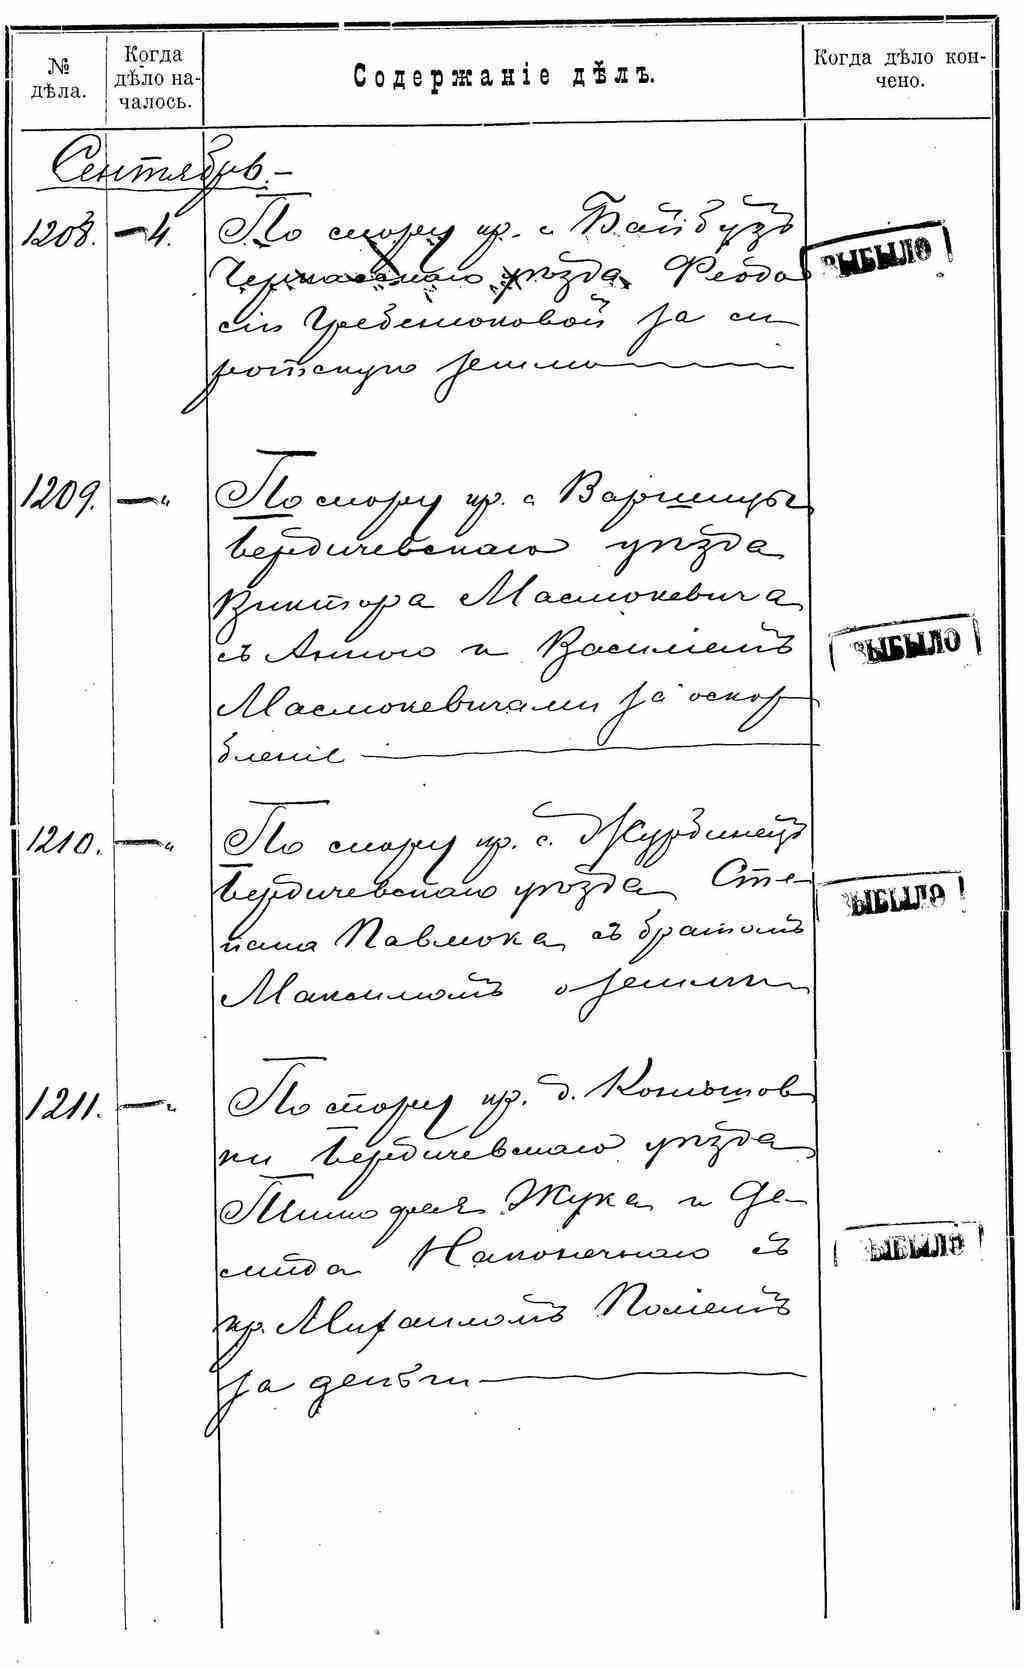 № дѣла.
Когда дѣло на-чалось.
Содержаніе дѣлъ.
Когда дѣло кон-чено.
Сентябрь.-
1208. — 4. По спору кр. с Байбузъ
Черкасскаго уѣзда Феодо
сіи Гребенюковой за си
ротскую землю
ВЫБЫЛО
1209. — " По спору кр. с
Бердичевскаго уѣзда
Виктора Маслюкевича
съ Анною и Василіемъ
Маслюкевичами за оскор
бленіе
ВЫБЫЛО
1210. — " По спору кр. с. Журбинецъ
Бердичевскаго уѣзда Сте-
пана Павлюка съ братомъ
Максимомъ о земли
ВЫБЫЛО
1211. — " По спору кр. д.
ки Бердичевскаго уѣзда
Тимофея Жука и Де-
мида Наконечнаго съ
кр. Михаиломъ
за деньги
ВЫБЫЛО